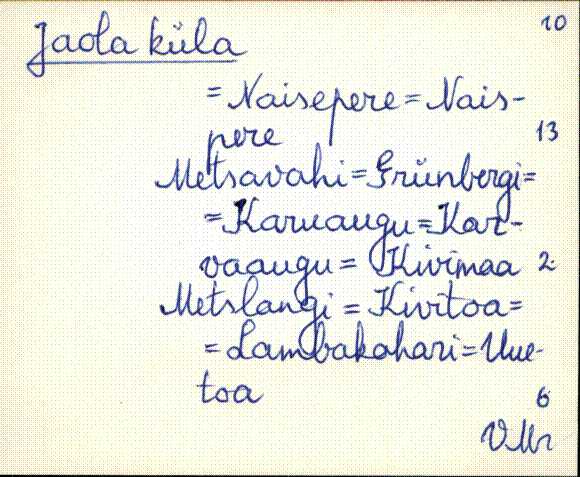 10
Jaola küla
= Naisepere = Nais-
pere 13
Metsavahi = Grünbergi =
= Karuaugu = Kar-
vaaugu = Kivimaa 2
Metslangi = Kivitoa =
= Lambakahari = Uue-
toa 6
VMr